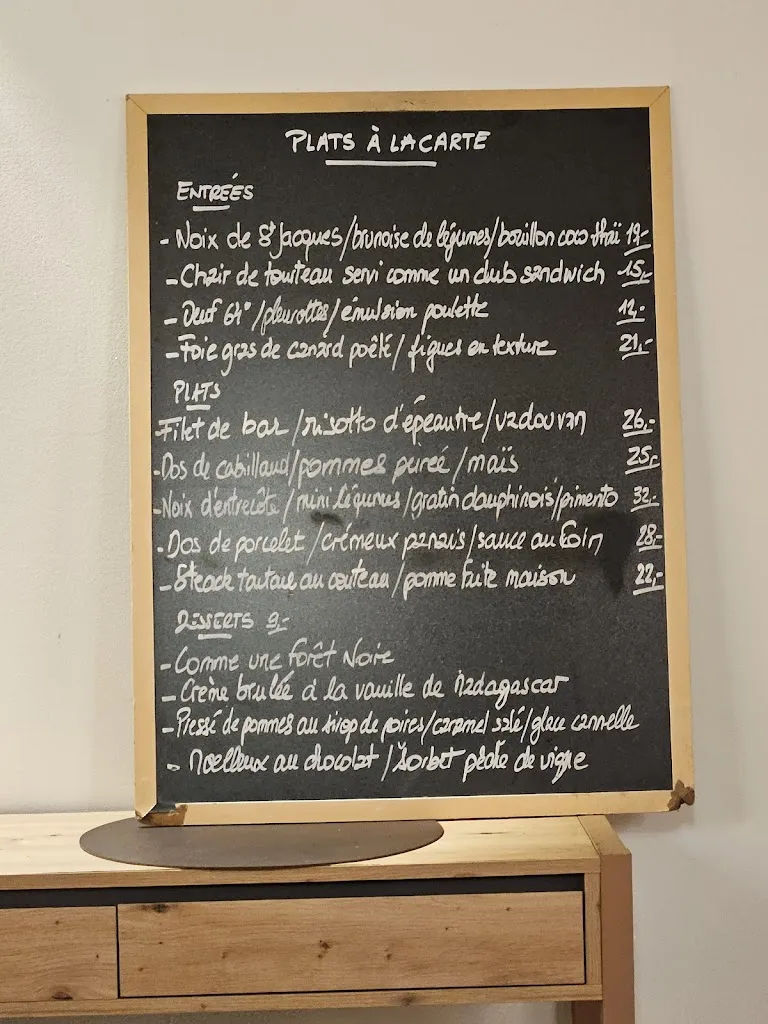 PLATS À LA CARTE
ENTRÉES
- Noix de St Jacques/brunoise de légumes/bouillon coco thaï 19,-
- Chair de tourteau servi comme un club sandwich 15,-
- Oeuf 64°/pleurottes/émulsion poulette 12,-
- Foie gras de canard poêlé/figues en texture 21,-
PLATS
- Filet de bar/risotto d'épeautre/vadouvan 26,-
- Dos de cabillaud/pommes purée/maïs 25,-
- Noix d'entrecôte/mini légumes/gratin dauphinois/pimento 32,-
- Dos de porcelet/crémeux panais/sauce au foin 28,-
- Steack tartare au couteau/pomme frite maison 22,-
DESSERTS 9,-
- Comme une forêt Noire
- Crème brulée à la vanille de Madagascar
- Pressé de pommes au sirop de poires/caramel salé/glace cannelle
- Moelleux au chocolat/Sorbet pêche de vigne